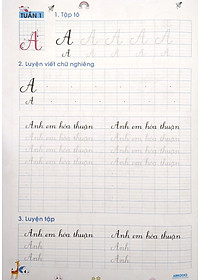 TUẦN 1
1. Tập tô
A A A A A A
2. Luyện viết chữ nghiêng
A
A
Anh em hòa thuận Anh em hòa thuận
Anh em hòa thuận Anh em hòa thuận
Anh em hòa thuận Anh em hòa thuận
Anh em hòa thuận Anh em hòa thuận
3. Luyện tập
Anh em hòa thuận Anh em hòa thuận
Anh Anh
Anh Anh